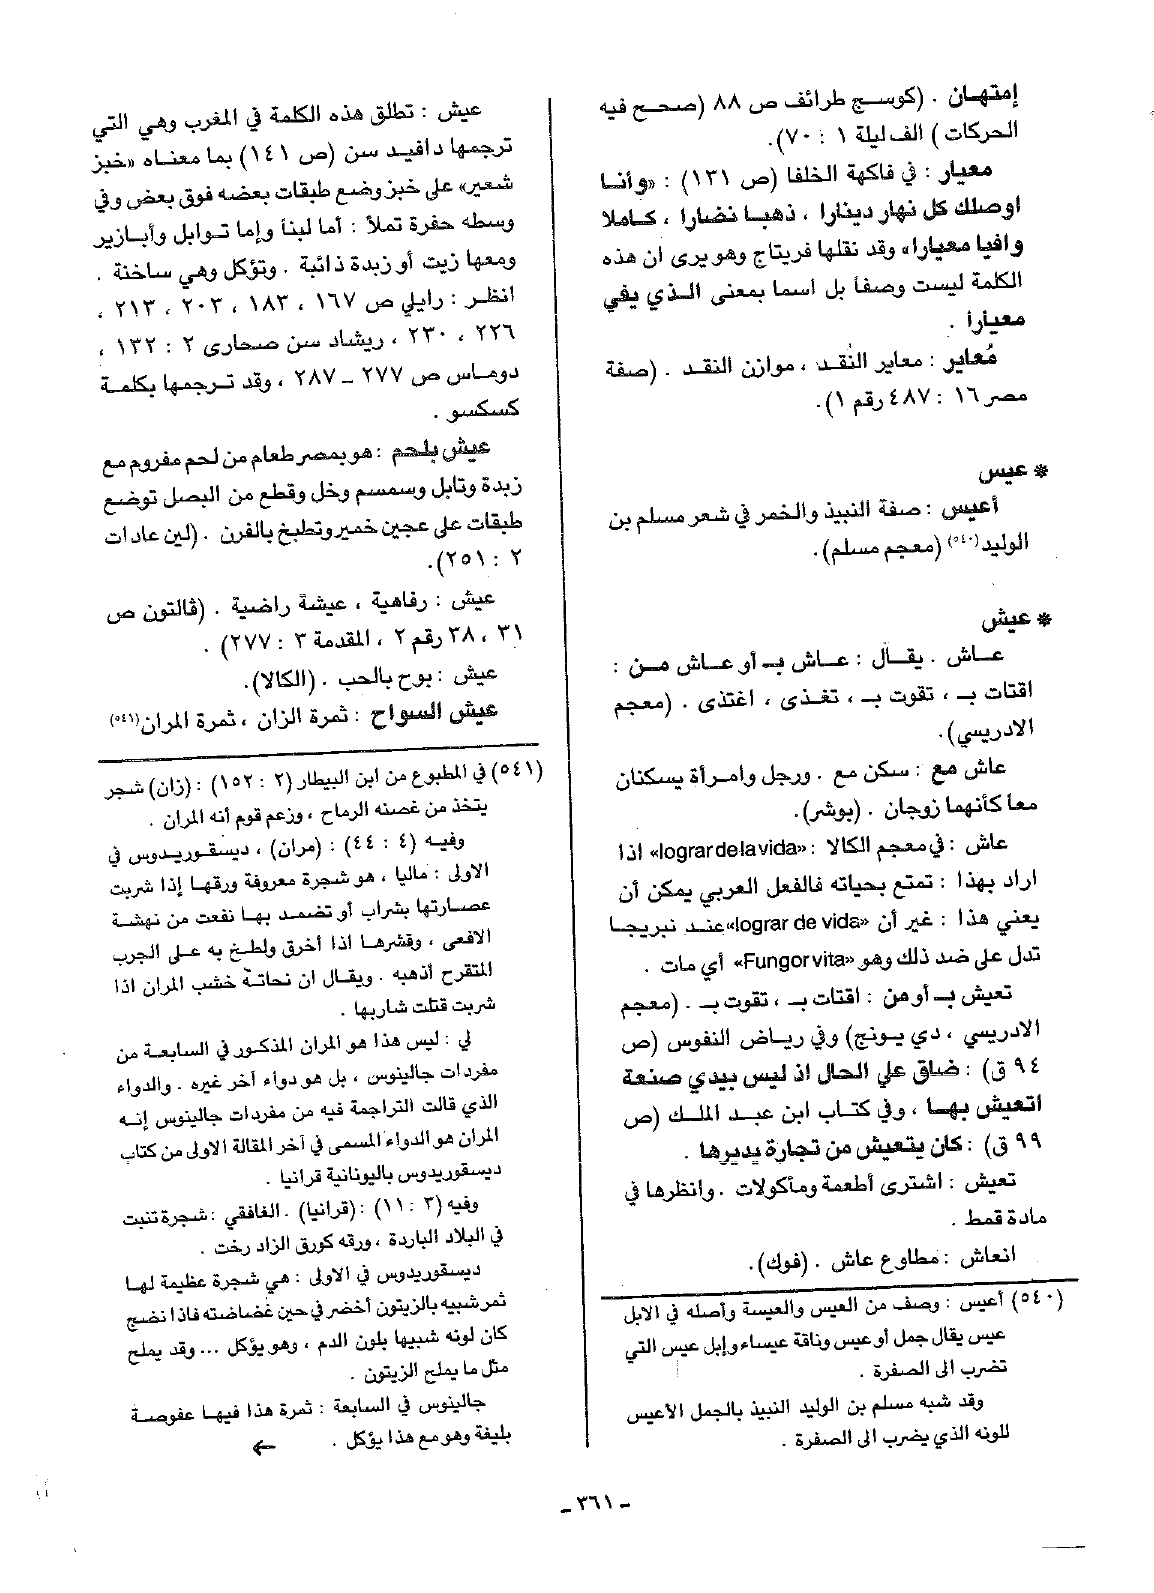 إمتهان . (كوسج طرائف ص ٨٨ (صحح فيه
الحركات) الف ليلة ١ : ٧٠).
معيار : في فاكهة الخلفا (ص ١٣١) : «وأنا
اوصلك كل نهار دينارا ، ذهبا نضارا ، كاملا
وافيا معيارا» وقد نقلها فريتاج وهو يرى ان هذه
الكلمة ليست وصفاً بل اسما بمعنى الذي يفي
معياراً .
مُعاير : معاير النُقد ، موازن النقد . (صفة
مصر ١٦ : ٤٨٧ رقم ١).
* عيس
أعيس : صفة النبيذ والخمر في شعر مسلم بن
الوليد(٥٤٠) (معجم مسلم).
* عيش
عاش . يقال : عاش بـ أو عاش من :
اقتات بـ ، تقوت بـ ، تغذى ، اغتذى . (معجم
الادريسي).
عاش مع : سكن مع . ورجل وامرأة يسكنان
معا كأنهما زوجان . (بوشر).
عاش : في معجم الكالا : «lograr de la vida» اذا
اراد بهذا : تمتع بحياته فالفعل العربي يمكن أن
يعني هذا : غير أن «lograr de vida» عند نبريجا
تدل على ضد ذلك وهو «Fungor vita» أي مات .
تعيش بـ أو من : اقتات بـ ، تقوت بـ . (معجم
الادريسي ، دي يونج) وفي رياض النفوس (ص
٩٤ ق) : ضاق علي الحال اذ ليس بيدي صنعة
اتعيش بها ، وفي كتاب ابن عبد الملك (ص
٩٩ ق) : كان يتعيش من تجارة يديرها .
تعيش : اشترى أطعمة ومأكولات . وانظرها في
مادة قمط .
انعاش : مطاوع عاش . (فوك).
(٥٤٠) أعيس : وصف من العيس والعيسة وأصله في الابل
عيس يقال جمل أو عيس وناقة عيساء وإبل عيس التي
تضرب الى الصفرة .
وقد شبه مسلم بن الوليد النبيذ بالجمل الأعيس
للونه الذي يضرب الى الصفرة .
عيش : تطلق هذه الكلمة في المغرب وهي التي
ترجمها دافيد سن (ص ١٤١) بما معناه «خبز
شعير» على خبز وضع طبقات بعضه فوق بعض وفي
وسطه حفرة تملأ : أما لبناً وإما توابل وأبازير
ومعها زيت أو زبدة ذائبة . وتؤكل وهي ساخنة .
انظر : رايلي ص ١٦٧ ، ١٨٣ ، ٢٠٣ ، ٢١٣ ،
٢٢٦ ، ٢٣٠ ، ريشاد سن صحارى ٢ : ١٣٢ ،
دوماس ص ٢٧٧ ــ ٢٨٧ ، وقد ترجمها بكلمة
كسكسو .
عيش بلحم : هو بمصر طعام من لحم مفروم مع
زبدة وتابل وسمسم وخل وقطع من البصل توضع
طبقات على عجين خمير وتطبخ بالفرن . (لين عادات
٢ : ٢٥١).
عيش : رفاهية ، عيشة راضية . (ڤالتون ص
٣١ ، ٣٨ رقم ٢ ، المقدمة ٣ : ٢٧٧) .
عيش : بوح بالحب . (الكالا).
عيش السواح : ثمرة الزان ، ثمرة المران(٥٤١)
(٥٤١) في المطبوع من ابن البيطار (٢ : ١٥٢) : (زان) شجر
يتخذ من غصنه الرماح ، وزعم قوم أنه المران .
وفيه (٤ : ٤٤) : (مران) ، ديسقوريدوس في
الاولى : ماليا ، هو شجرة معروفة ورقها إذا شربت
عصارتها بشراب أو تضمد بها نفعت من نهشة
الافعى ، وقشرها اذا أخرق ولطخ به على الجرب
المتقرح أذهبه . ويقال ان نحاتة خشب المران اذا
شربت قتلت شاربها .
لي : ليس هذا هو المران المذكور في السابعة من
مفردات جالينوس ، بل هو دواء آخر غيره . والدواء
الذي قالت التراجمة فيه من مفردات جالينوس إنه
المران هو الدواء المسمى في آخر المقالة الاولى من كتاب
ديسقوريدوس باليونانية قرانيا .
وفيه (٣ : ١١) : (قرانيا) . الغافقي : شجرة تنبت
في البلاد الباردة ، ورقه كورق الزاد رخت .
ديسقوريدوس في الاولى : هي شجرة عظيمة لها
ثمر شبيه بالزيتون أخضر في حين غضاضته فاذا نضج
كان لونه شبيها بلون الدم ، وهو يؤكل ... وقد يملح
مثل ما يملح الزيتون .
جالينوس في السابعة : ثمرة هذا فيها عفوصة
بليغة وهو مع هذا يؤكل .
ـ ٣٦١ ـ